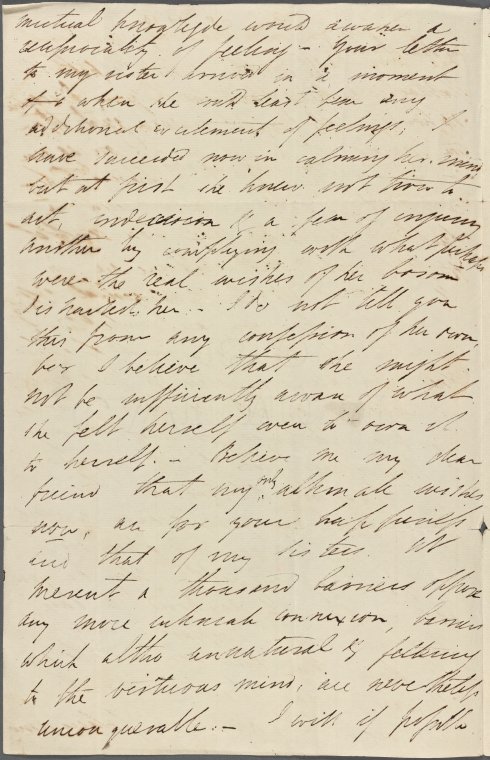 mutual knowledge would awaken a
reciprocality of feeling - Your letter
to my sister arrived in a moment
when she cd least bear any
additional excitement of feelings; I
have succeeded now in calming her mind
but at first she knew not how to
act, indecision & a fear of injuring
another by complying with what perhaps
were the real wishes of her bosom
distracted her. - I do not tell you
this from any confession of her own,
for I believe that she might
not be sufficiently aware of what
she felt herself even to own it
to herself. - Believe me my dear
friend that my only ultimate wishes
now, are for your happiness
and that of my sisters. At
present a thousand barriers oppose
any more intimate connexion, barriers
which altho unnatural & fettering
to the virtuous mind, are nevertheless
unconquerable. - I will if possible